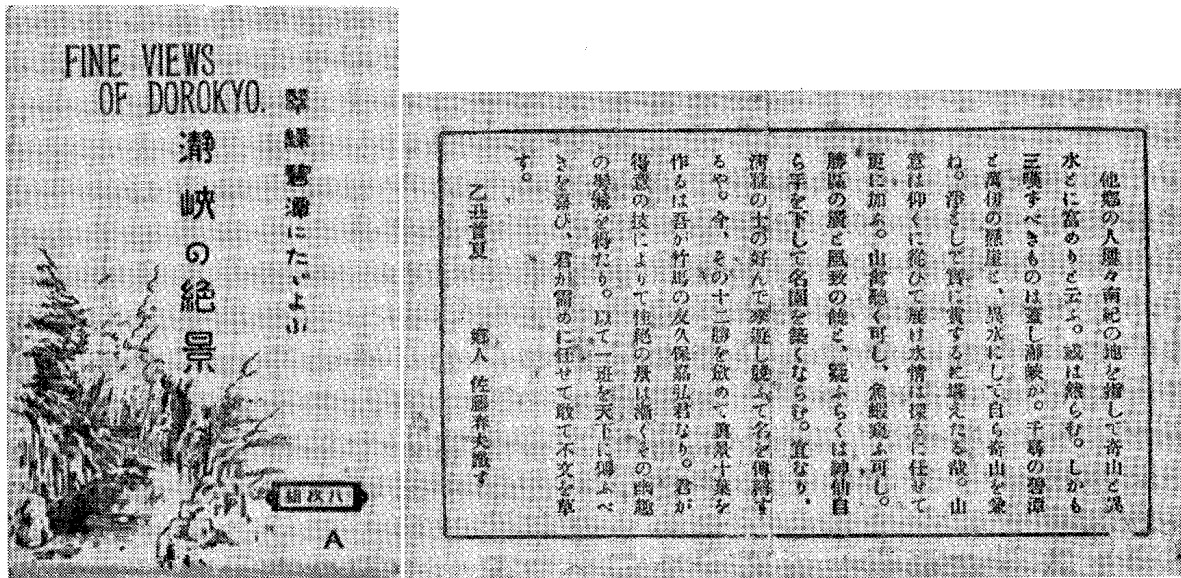 FINE VIEWS
OF DOROKYO.
翠緑碧潭にたゞよふ
瀞峡の絶景
八枚組
A
他郷の人屡々南紀の地を指して奇山と異
水とに富めりと云ふ。或は然らむ。しかも
三嘆すべきものは蓋し瀞峡か。千尋の碧潭
と萬仞の懸崖と、異水にして自ら奇山を兼
ね。して實に賞するに堪えたる哉。山
意は仰ぐに從ひて展け水情はるに任せて
更に加ふ。山禽聽く可し、魚蝦窺ふ可し。
勝區の廣と風致の饒と、疑ふらくは神仙自
ら手を下して名園を築くならむ。宜なり、
清雅の士の好んで來遊し競ふて名を傳稱す
るや。今、その十二勝を收めて眞景十葉を
作るは吾が竹馬の友久保嘉弘君なり。君が
得意の技によりて佳絶の景は漸くその幽趣
の髣髴を得たり。以て一班を天下にふべ
きを喜び、君が需めに任せて敢て不文を草
す。
乙丑首夏　郷人 佐藤春夫識す